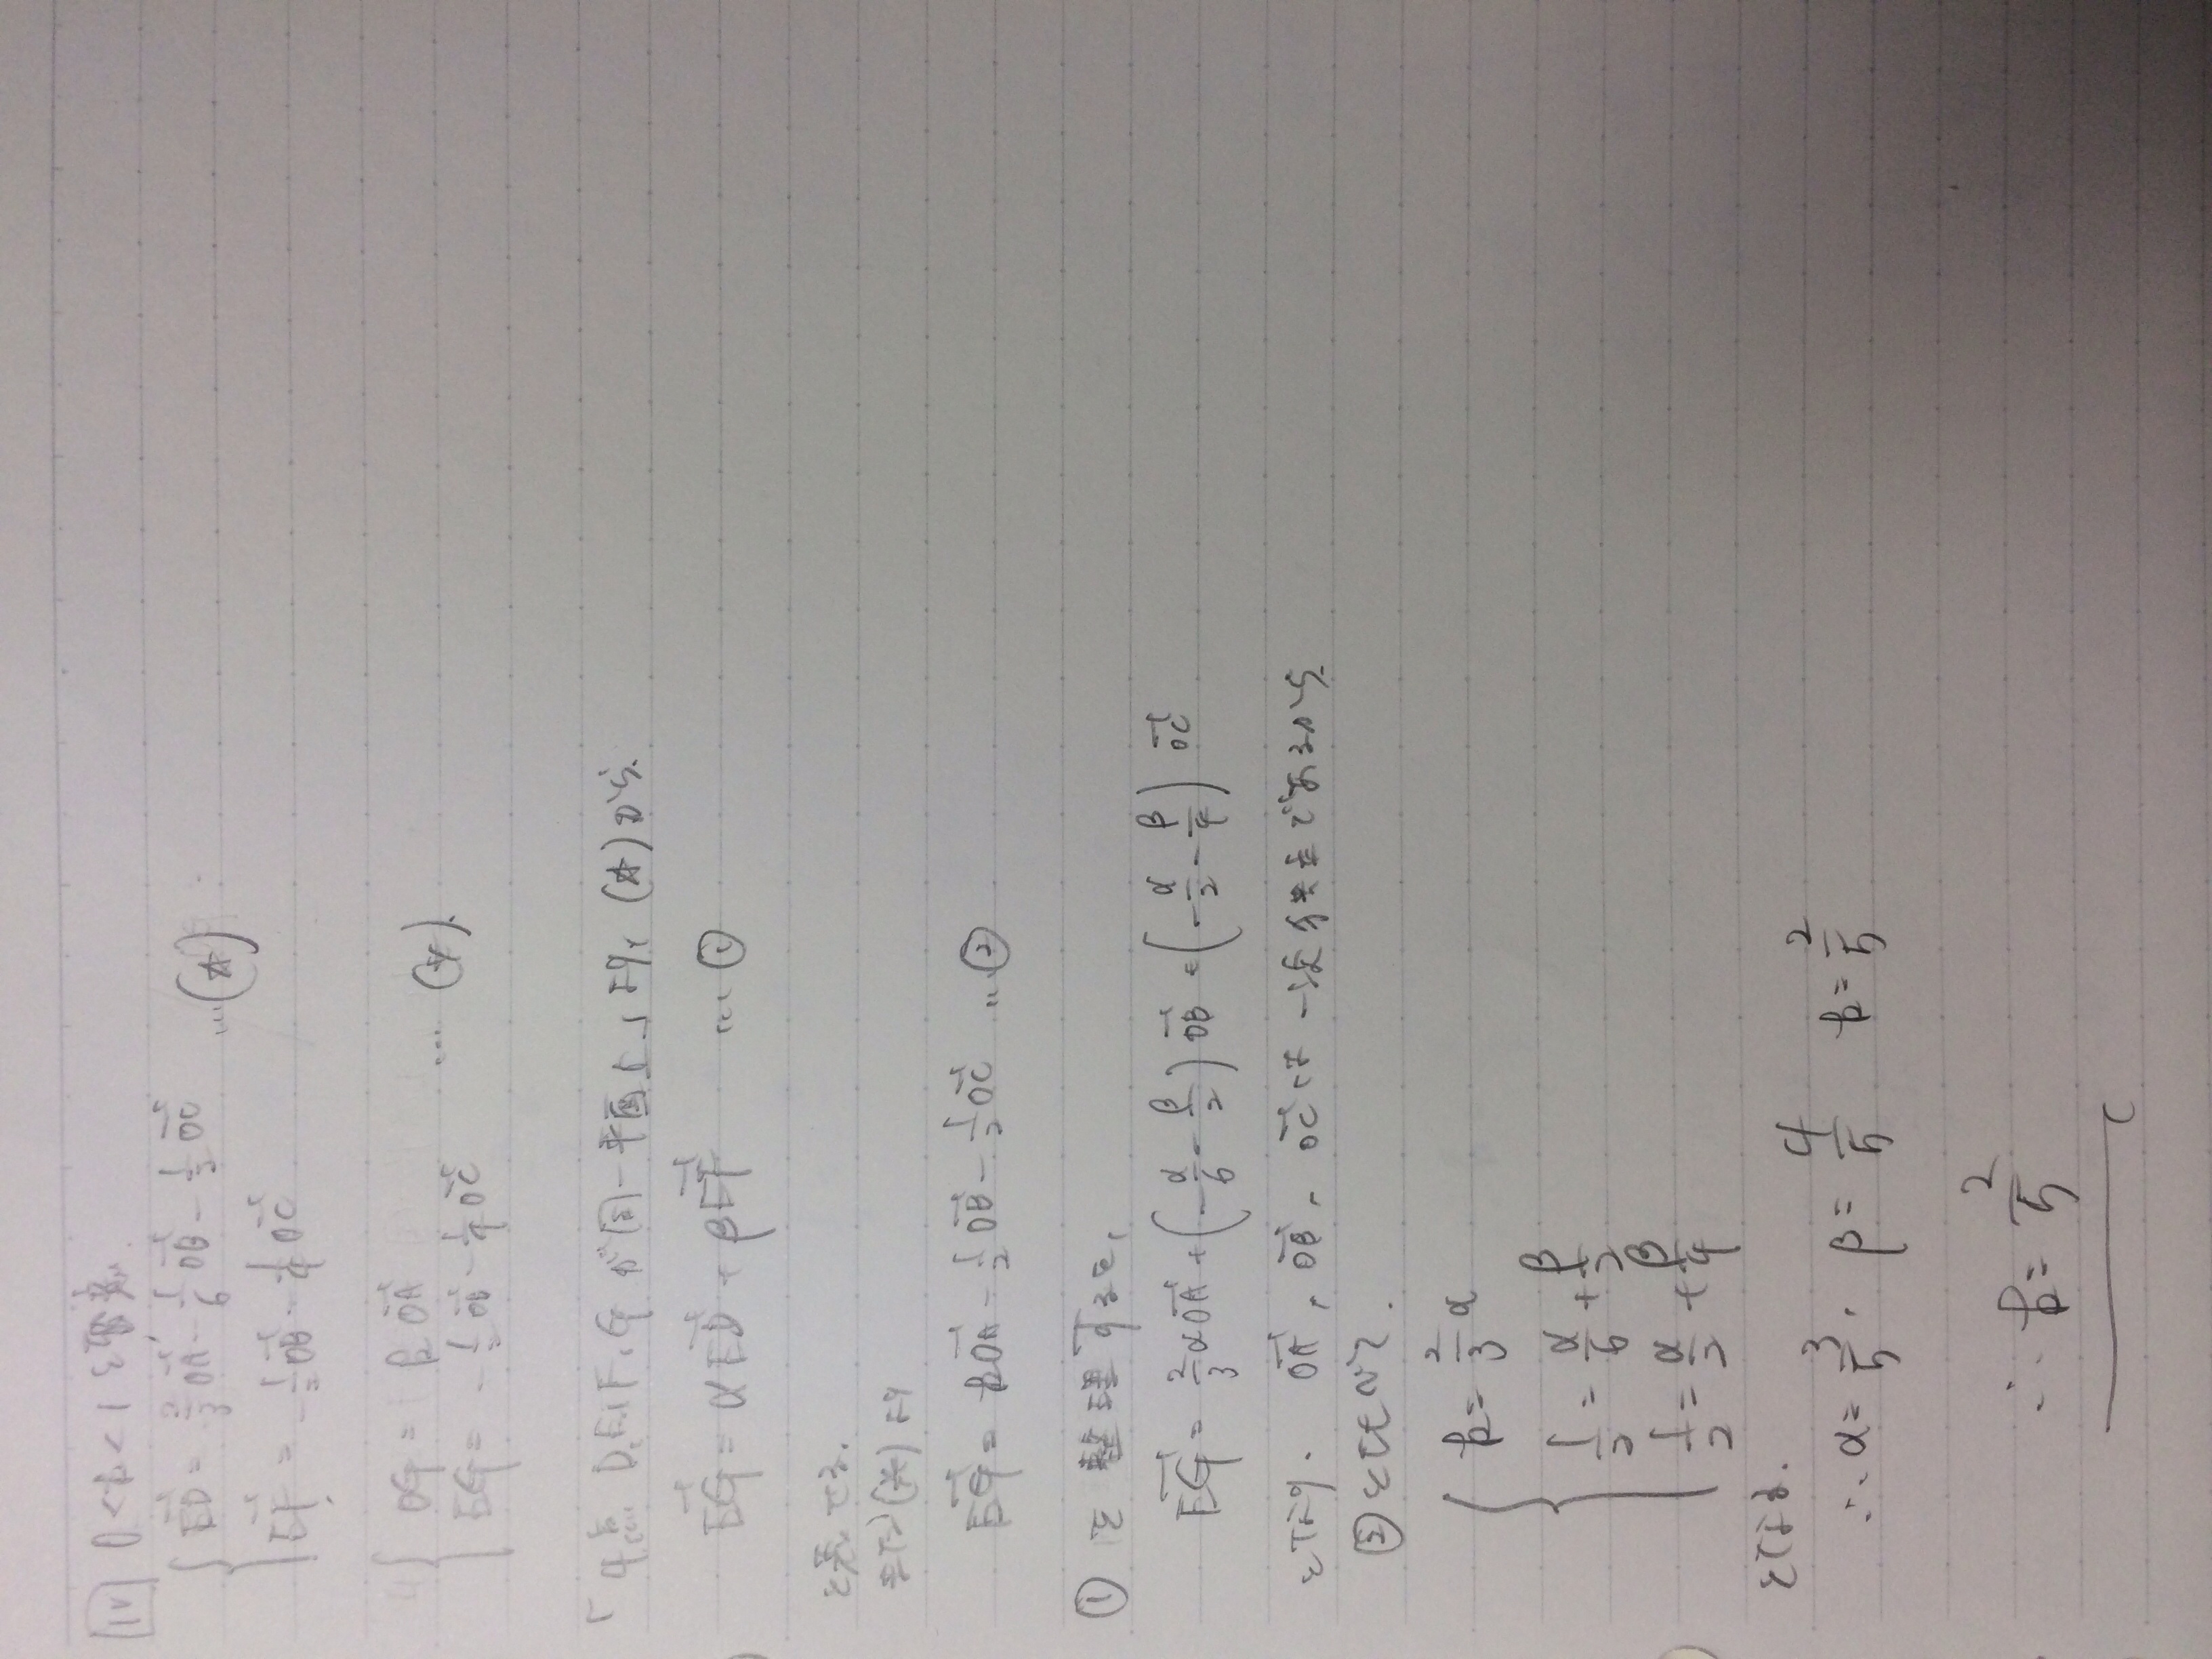 0<k<1 を
ED = 2/3 OA - 1/6 OB - 1/2 OC …(☆)
EF = -1/2 OB - 1/4 OC
OG = k OA …(*)
EG = -1/2 OB - 1/2 OC
「4点 D, E, F, G が同一平面上」より (☆)から
EG = αED + βEF … ①
と表せる.
また(*)より
EG = kOA - 1/2 OB - 1/2 OC … ②
① を整理すると,
EG = 2/3 αOA + (-α/6 - β/2) OB + (-α/2 - β/4) OC
となり. OA, OB, OC は一次独立であるから
②と比べて.
k = 2/3 α
1/2 = α/6 + β/2
1/2 = α/2 + β/4
となる.
∴ α = 3/5, β = 4/5 k = 2/5
∴ k = 2/5